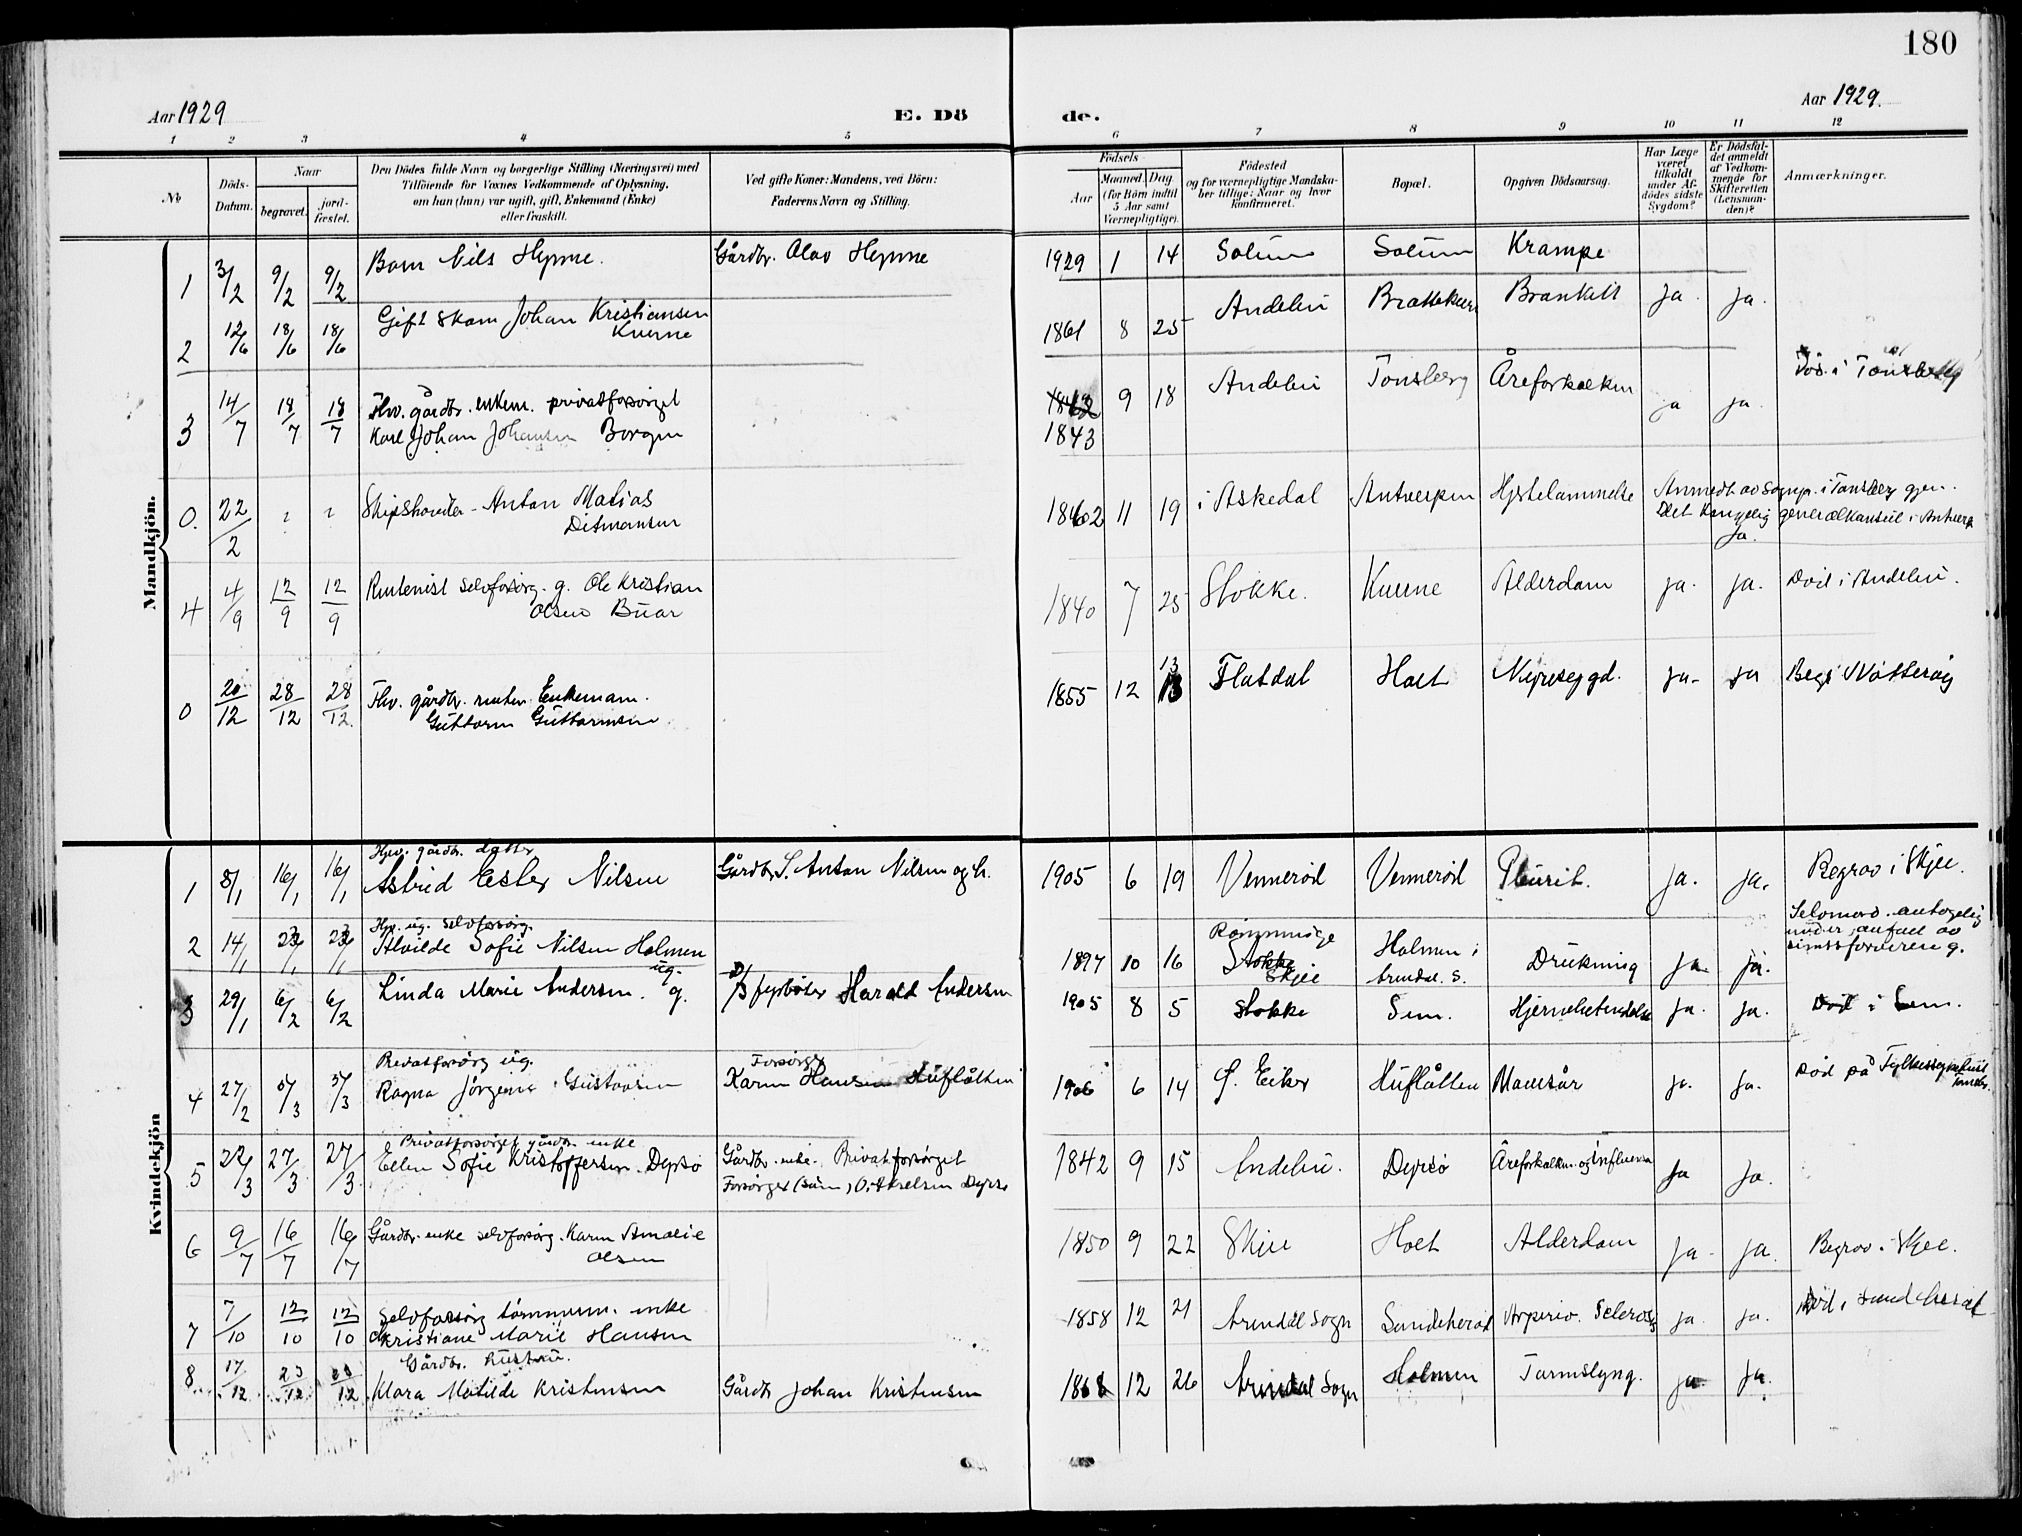 180
Aar 1929
E. Dö
de.
Aar 1929.
1 2 3 4 5 6 7 8 9 10 11 12
No
Döds-
Datum.
Naar
begravet.
jord-
fæstet.
Den Dödes fulde Navn og borgerlige Stilling (Næringsvei) med
Tilföiende for Voxnes Vedkommende af Oplysning,
om han (hun) var ugift, gift, Enkemand (Enke)
eller fraskilt.
Ved gifte Koner: Mandens, ved Börn:
Faderens Navn og Stilling.
Födsels-
Aar
Maaned. Dag
(for Börn indtil
5 Aar samt
Værnepligtige).
Födested
og for værnepligtige Mandska-
ber tillige: Naar og hvor
konfirmeret.
Bopæl.
Opgiven Dödsaarsag.
Har Læge
været
tilkaldt
under Af-
dödes sidste
Sygdom?
Er Dödsfal-
det anmeldt
af Vedkom-
mende for
Skifteretten
(Lensman-
den)?
Anmærkninger.
Mandkjön.
1 3/2 9/2 9/2 Barn Nils Hynne. Gårdbr. Olav Hynne 1929 1 14 Solum Solum Krampe
2 12/6 18/6 18/6 Gift skom Johan Kristiansen
Kverne
1861 8 25 Andebu Brankitt ja. ja.
3 14/7 18/7 18/7 Fhv. gårdbr. enkem. privatforsørget
Karl Johan Johansen Borgen
1843 9 18 Andebu Tønsberg Åreforkalkn ja ja.
Död i Tønsberg
0. 22/2 Skipshandler Anton Matias
Ditmansen
1862 11 19 i Askedal Antverpen Hjertelammelse
Anmeldt av Sognepr. i Tønsberg gjen.
Det Kongelig generalkonsul i Antverp
ja.
4 4/9 12/9 12/9 Rentenist selvforsørg. g. Ole Kristian
Olsen Buar
1840 7 25 Stokke. Kverne Alderdom ja. ja. Död i Andebu.
0 20/12 28/12 28/12 Fhv. gårdbr. renten. Enkemann.
Guttorm Guttormsen
1855 12 13 Flatdal Holt ja. ja Begr. i Nötteröy
Kvindekjön
Hjv. gårdbr. datter
1 8/1 16/1 16/1 Astrid Ester Nilsen Gårdbr. S. Anton Nilsen og h. 1905 6 19 Vennerød Vennerød Pleurit. ja. ja. Begrav i Skjee.
Hjv. ug. selvforsørg.
2 14/1 23/1 23/1 Alvilde Sofie Nilsen Holmen
ug.
1897 10 16 Stokke
Skjee
Holmen i
Arendal. S.
Drukning ja. ja.
Selvmord. antagelig
under anfall av
sinnsforvirring.
3 29/1 6/2 6/2 Linda Marie Andersen. g. fyrböter Harald Andersen 1905 8 5 Stokke Sem. Hjernebetendelse ja. ja. Död i Sem.
Privatforsørg ug.
4 27/2 5/3 5/3 Ragna Jörgene Gustavsen
Forsørger
Karen Hansen Huflåtten 1906 6 14 Ø. Eiker Huflåtten Mavesår ja. ja. Död på Fylkessykehuset
Tønsbr.
Privatforsørget gårdbr. enke
5 22/3 27/3 27/3 Ellen Sofie Kristoffersen. Dyrsø
Gårdbr. enke. Privatforsørget
1842 9 15 Andebu. Dyrsø Åreforkalkn. og Influensa ja ja.
6 9/7 16/7 16/7 Gårdbr. enke selvforsørg. Karen Amalie
Olsen
1850 9 22 Skjee Holt Alderdom ja. ja. Begrav. i Skjee.
7 7/10 12/10 12/10 Selvforsørg tømmerm. enke
Kristiane Marie Hansen
1858 12 21 Arendal Sogn Sandeherad ja. ja. Död i Sandeherad
Gårdbr. hustru.
8 17/12 23/12 23/12 Klara Matilde Kristensen Gårdbr Johan Kristensen 1868 12 26 Arendal Sogn Holmen Tarmslyng. ja. ja.